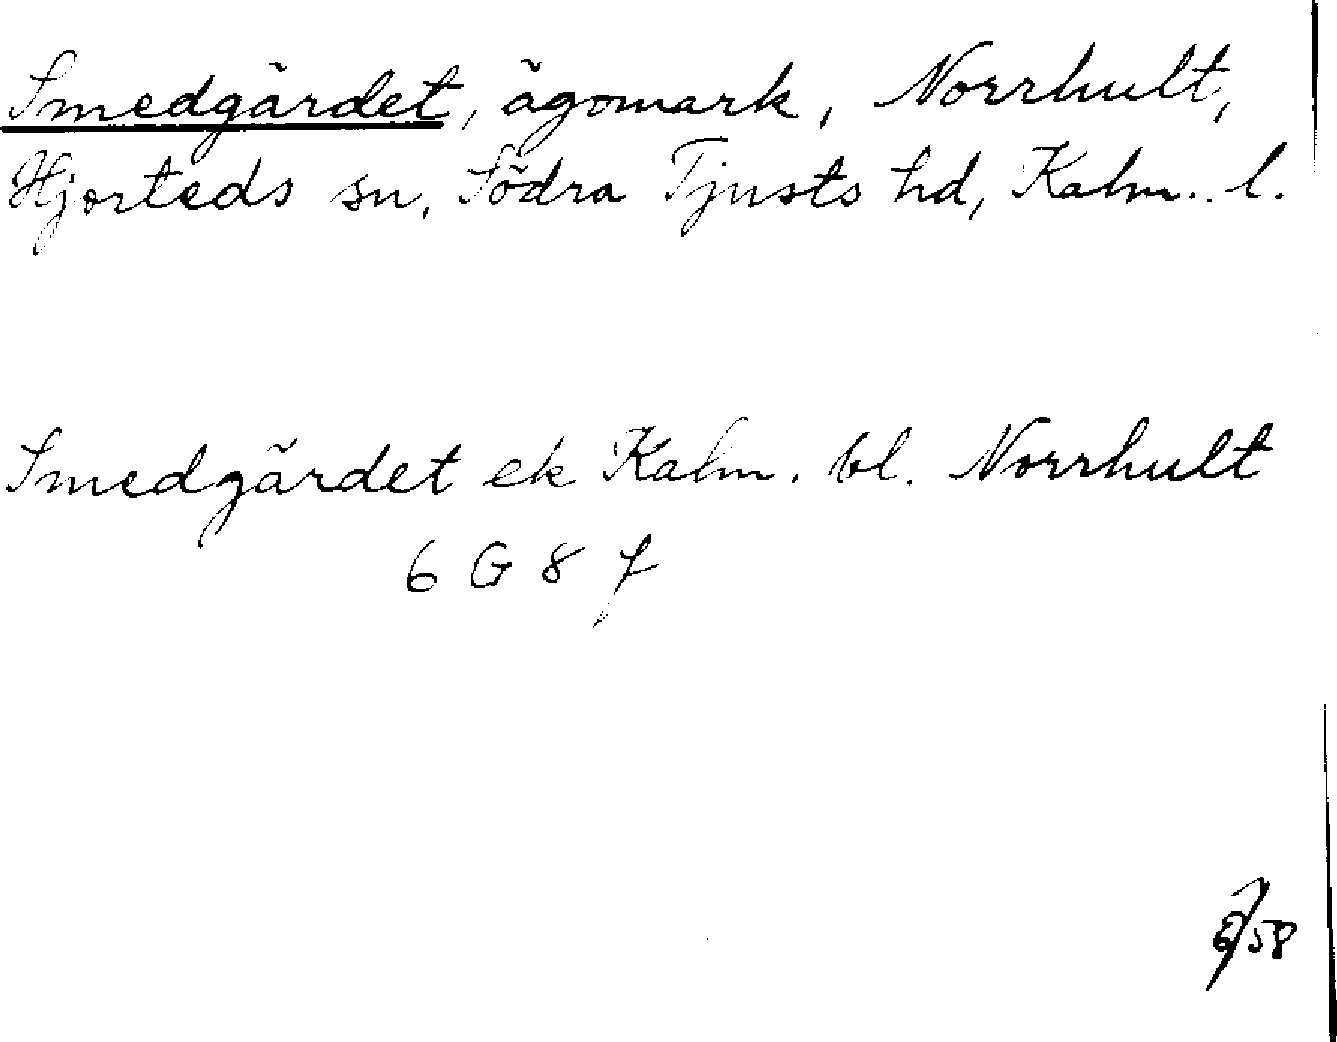 Smedgärdet, ägomark, Norrhult,
Hjorteds sn, Södra Tjusts hd, Kalm. l.
Smedgärdet ek Kalm. bl. Norrhult
6 G 8 f